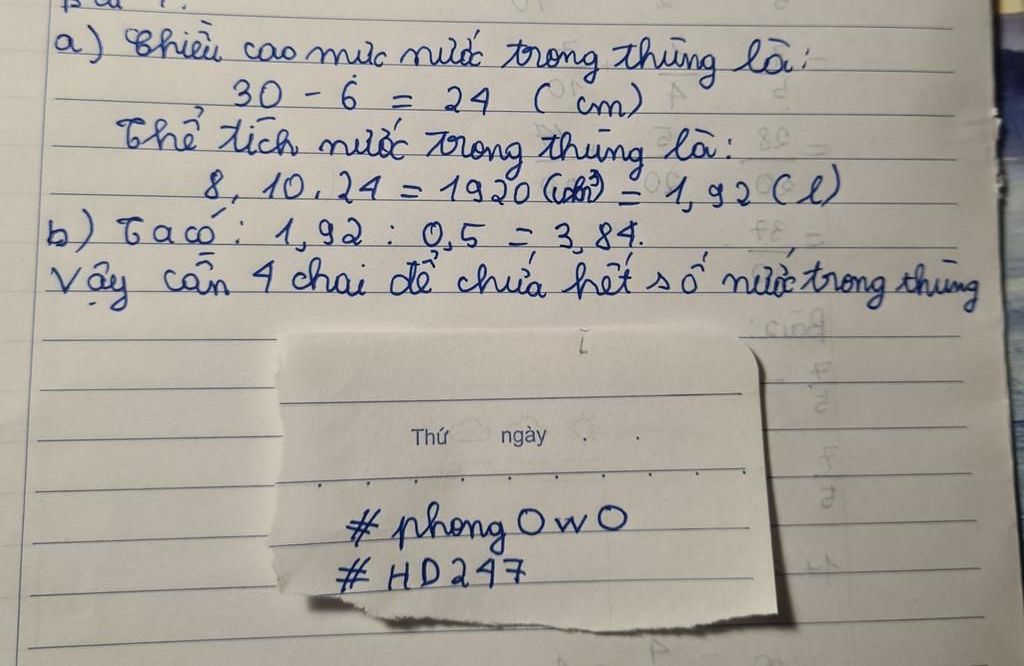 a) Chiều cao mức nước trong thùng là:
30 - 6 = 24 (cm)
Thể tích nước trong thùng là:
8.10.24 = 1920 (cm³) = 1,92 (l)
b) Ta có: 1,92 : 0,5 = 3,84.
Vậy cần 4 chai để chứa hết số nước trong thùng
Thứ ngày . .
# phong OwO
# HD247